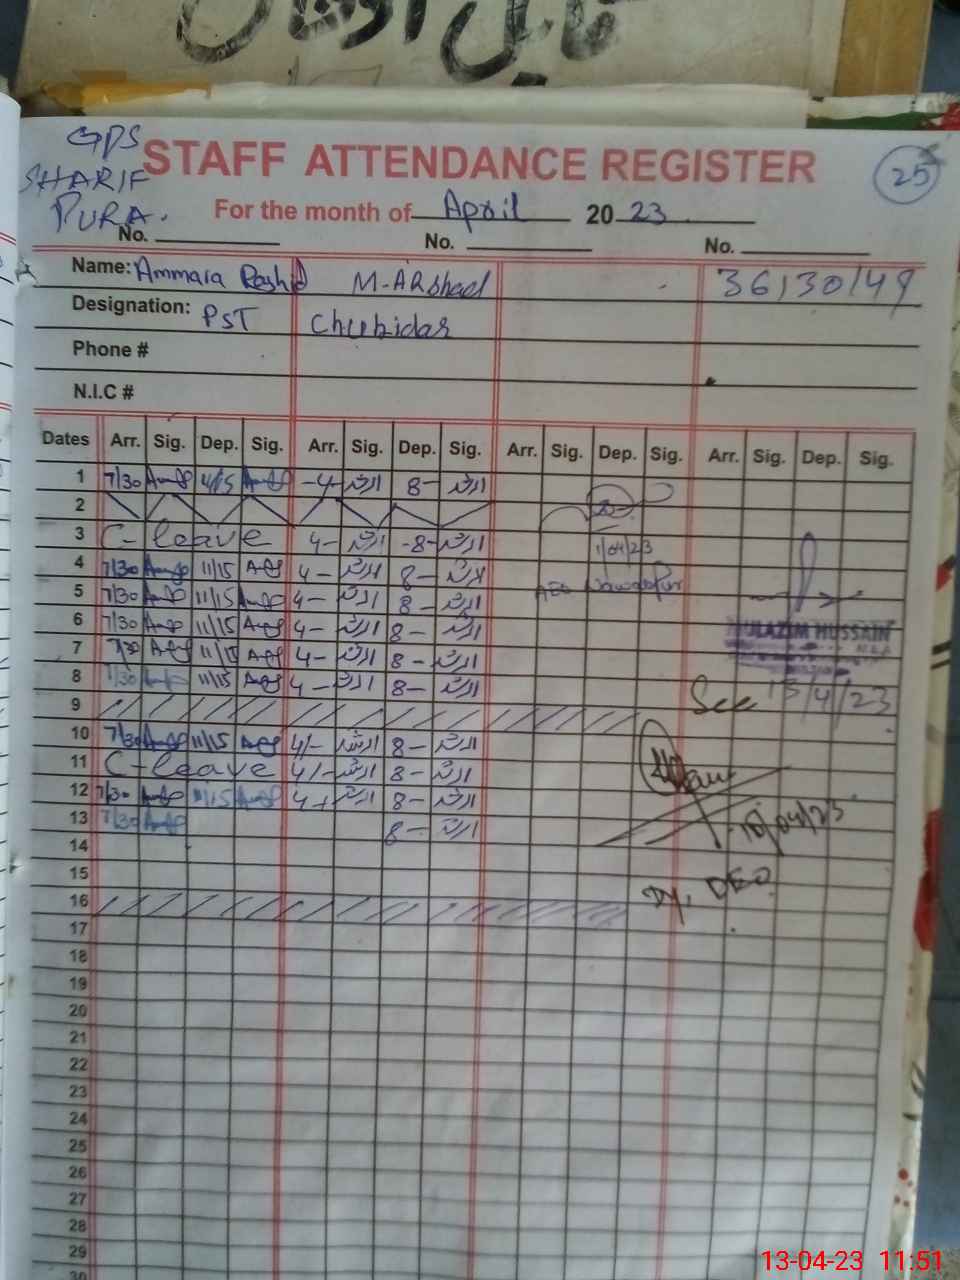 فائل
GPS
SHARIF
PURA.
STAFF ATTENDANCE REGISTER
25
For the month of April 2023
No. No. No.
Name: Ammara Rashid M-ARshad 36130149
Designation: PST Chukidar
Phone #
N.I.C #
Dates Arr. Sig. Dep. Sig. Arr. Sig. Dep. Sig. Arr. Sig. Dep. Sig. Arr. Sig. Dep. Sig.
1 7/30 11/15 -4- ارشد 8- ارشد
2
3 C-leave 4- ارشد -8- ارشد 1/04/23
4 7/30 11/15 4- ارشد 8- ارشد
5 7/30 11/15 4- ارشد 8- ارشد AEO
6 7/30 11/15 4- ارشد 8- ارشد MULAZIM HUSSAIN
7 7/30 11/15 4- ارشد 8- ارشد
8 7/30 11/15 4- ارشد 8- ارشد See 15/4/23
9
10 7/30 11/15 4/- ارشد 8- ارشد
11 C-leave 4/- ارشد 8- ارشد
12 7/30 11/15 4- ارشد 8- ارشد
13 7/30 8- ارشد 10/04/23
14
15 Dy. DEO
16
17
18
19
20
21
22
23
24
25
26
27
28
29
30
13-04-23 11:51